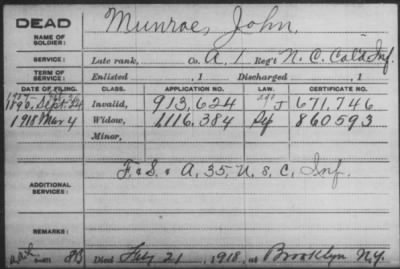 DEAD
NAME OF SOLDIER: Munroe, John.
SERVICE: Late rank, Co. A, 1 Reg't N. C. Col'd Inf.
TERM OF SERVICE: Enlisted , 1 Discharged , 1
DATE OF FILING. CLASS. APPLICATION NO. LAW. CERTIFICATE NO.
1890, Sept. 24 Invalid, 913,624 J 671,746
1918 Mar 4 Widow, 1116,384 860593
Minor,
ADDITIONAL SERVICES: F. & S. & A, 35, U. S. C, Inf.
REMARKS:
Died July 21, 1918, at Brooklyn N.Y.